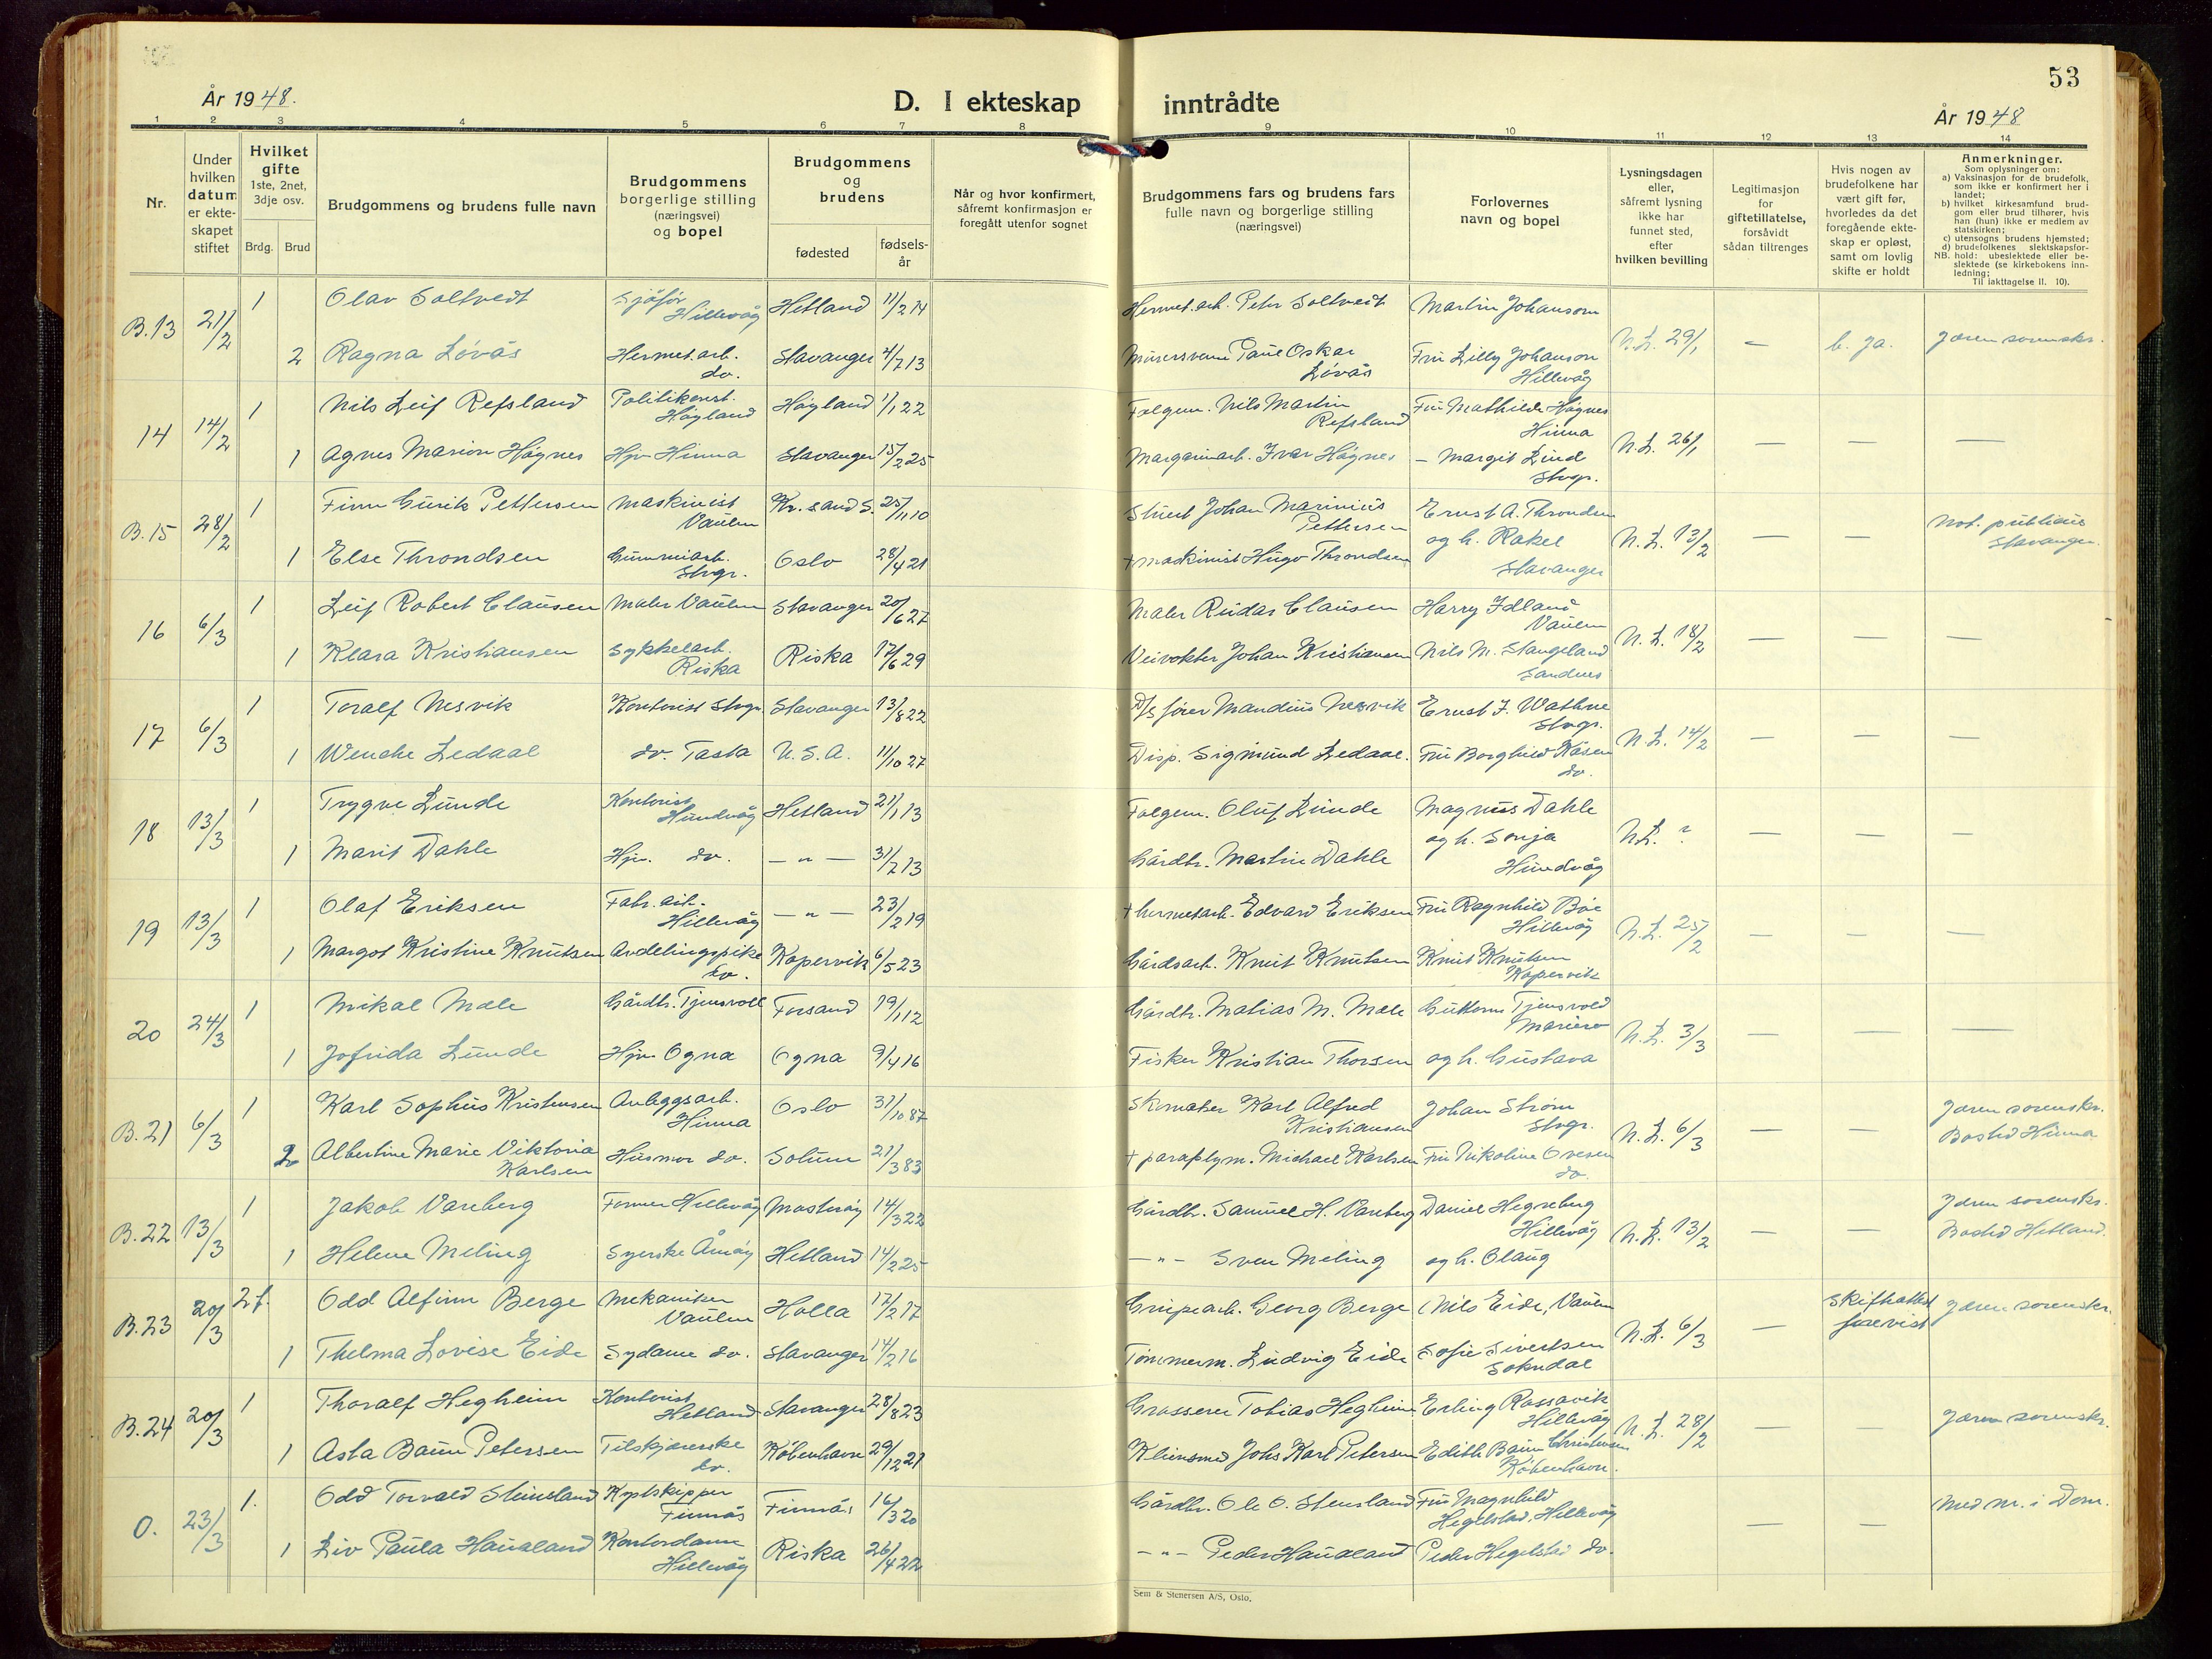 År 1948.
D. I ekteskap inntrådte
53
År 1948
1 2 3 4 5 6 7 8 9 10 11 12 13 14
Nr.
Under hvilken datum er ekteskapet stiftet
Hvilket gifte 1ste, 2net, 3dje osv.
Brdg. Brud
Brudgommens og brudens fulle navn
Brudgommens borgerlige stilling (næringsvei) og bopel
Brudgommens og brudens
fødested
fødselsår
Når og hvor konfirmert, såfremt konfirmasjon er foregått utenfor sognet
Brudgommens fars og brudens fars fulle navn og borgerlige stilling (næringsvei)
Forlovernes navn og bopel
Lysningsdagen eller, såfremt lysning ikke har funnet sted, efter hvilken bevilling
Legitimasjon for giftetillatelse, forsåvidt sådan tiltrenges
Hvis nogen av brudefolkene har vært gift før, hvorledes da det foregående ekteskap er opløst, samt om lovlig skifte er holdt
Anmerkninger.
Som oplysninger om:
a) Vaksinasjon for de brudefolk, som ikke er konfirmert her i landet;
b) hvilket kirkesamfund brudgom eller brud tilhører, hvis han (hun) ikke er medlem av statskirken;
c) utensogns brudens hjemsted;
d) brudefolkenes slektskapsforhold: ubeslektede eller beslektede (se kirkebokens innledning;
NB.
Til iakttagelse II. 10).
B.13 21/2 1 Olav Soltvedt Sjåfør Hillevåg Hetland 11/2 14 Hermet.arb. Peter Soltvedt Martin Johanson
2 Ragna Løvås Hermet.arb. do. Stavanger 4/7 13 Murersvenn Paul Oskar Løvås Fru Lilly Johanson Hillevåg N.L. 29/1 — b. ja. Jæren sorenskr.
14 14/2 1 Nils Leif Refsland Politikonst. Høyland Høyland 1/1 22 Følgem. Nils Martin Refsland Fru Mathilde Høgnes Hinna
1 Agnes Marion Høgnes Hjv Hinna Stavanger 15/2 25 Margarinarb. Ivar Høgnes — Margit Lind Stvgr. N.L. 26/1 — — —
B.15 28/2 1 Finn Gurik Pettersen Maskinist Vaulen Kr.sand S. 25/1 10 Stuert Johan Marinius Pettersen Ernst A. Throndsen
1 Else Throndsen Gummiarb. Stvgr. Oslo 28/4 21 + maskinist Hugo Throndsen og h. Rakel Stavanger N.L. 13/2 — — Not. publicus Stavanger.
16 6/3 1 Leif Robert Clausen Maler Vaulen Stavanger 20/6 27 Maler Reidar Clausen Harry Idland Vaulen
1 Klara Kristiansen Sykkelarb. Riska Riska 17/6 29 Veivokter Johan Kristiansen Nils M. Stangeland Sandnes N.L. 18/2 — — —
17 6/3 1 Toralf Nesvik Kontorist Stvgr. Stavanger 13/8 22 D/s fører Mandius Nesvik Ernst J. Wathne Stvgr.
1 Wenche Ledaal do. Tasta U.S.A. 11/10 27 Disp. Sigmund Ledaal. Fru Borghild Kåsen do. N.L. 14/2 — — —
18 13/3 1 Trygve Lunde Kontorist Hundvåg Hetland 21/1 13 Følgem. Oluf Lunde Magnus Dahle
1 Marit Dahle Hjv. do. — " — 31/2 13 Gårdbr. Martin Dahle og h. Sonja Hundvåg N.L. ? — — —
19 13/3 1 Olaf Eriksen Fabr.arb. Hillevåg — " — 23/2 19 + hermetarb. Edvard Eriksen Fru Ragnhild Bøe Hillevåg
1 Margot Kristine Knutsen Avdelingspike do. Kopervik 6/5 23 Gårdsarb. Knut Knutsen Knut Knutsen Kopervik N.L. 25/2 — — —
20 24/3 1 Mikal Mæle Gårdbr. Tjensvoll Forsand 19/1 12 Gårdbr. Matias M. Mæle Guttorm Tjensvold Mariero
1 Jofrida Lunde Hjv. Ogna Ogna 9/4 16 Fisker Kristian Thorsen og h. Gustava N.L. 3/3 — — —
B.21 6/3 1 Karl Sophus Kristensen Anleggsarb. Hinna Oslo 31/10 87 Skomaker Karl Alfred Kristiansen Johan Strøm Stvgr.
2 Albertine Marie Viktoria Karlsen Husmor do. Solum 21/3 83 + paraplym. Michael Karlsen Fru Nikoline Ovesen do. N.L. 6/3 — — Jæren sorenskr. Bosted Hinna
B.22 13/3 1 Jakob Vareberg Former Hillevåg Mosterøy 14/3 22 Gårdbr. Samuel H. Vareberg Daniel Hegreberg Hillevåg
1 Helene Meling Syerske Åmøy Hetland 14/2 25 — " — Sven Meling og h. Olaug N.L. 13/2 — — Jæren sorenskr. Bosted Hetland.
B.23 20/3 2 f. Odd Alfinn Berge Mekaniker Vaulen Holla 17/2 17 Grupearb. Georg Berge Nils Eide, Vaulen
1 Thelma Lovise Eide Sydame do. Stavanger 14/2 16 Tømmerm. Ludvig Eide Sofie Sivertsen Sokndal N.L. 6/3 — Skifteattest forevist Jæren sorenskr.
B.24 20/3 1 Thoralf Hegheim Kontorist Hetland Stavanger 28/8 23 Grosserer Tobias Hegheim Erling Rossavik Hillevåg
1 Asta Baun Petersen Tilskjærerske do. København 29/12 21 Kleinsmed Johs Karl Petersen Edith Baun Christensen København. N.L. 28/2 — — Jæren sorenskr.
O. 23/3 1. Odd Torvald Steinsland Kystskipper Finnås Finnås 16/3 20 Gårdbr. Ole O. Stensland Fru Magnhild Hegelstad, Hillevåg
1 Liv Paula Haualand Kontordame Hillevåg Riska 26/4 22 — " — Peder Haualand Peder Hegelstad do. — — Med m. i Dom.
Sem & Stenersen A/S, Oslo.